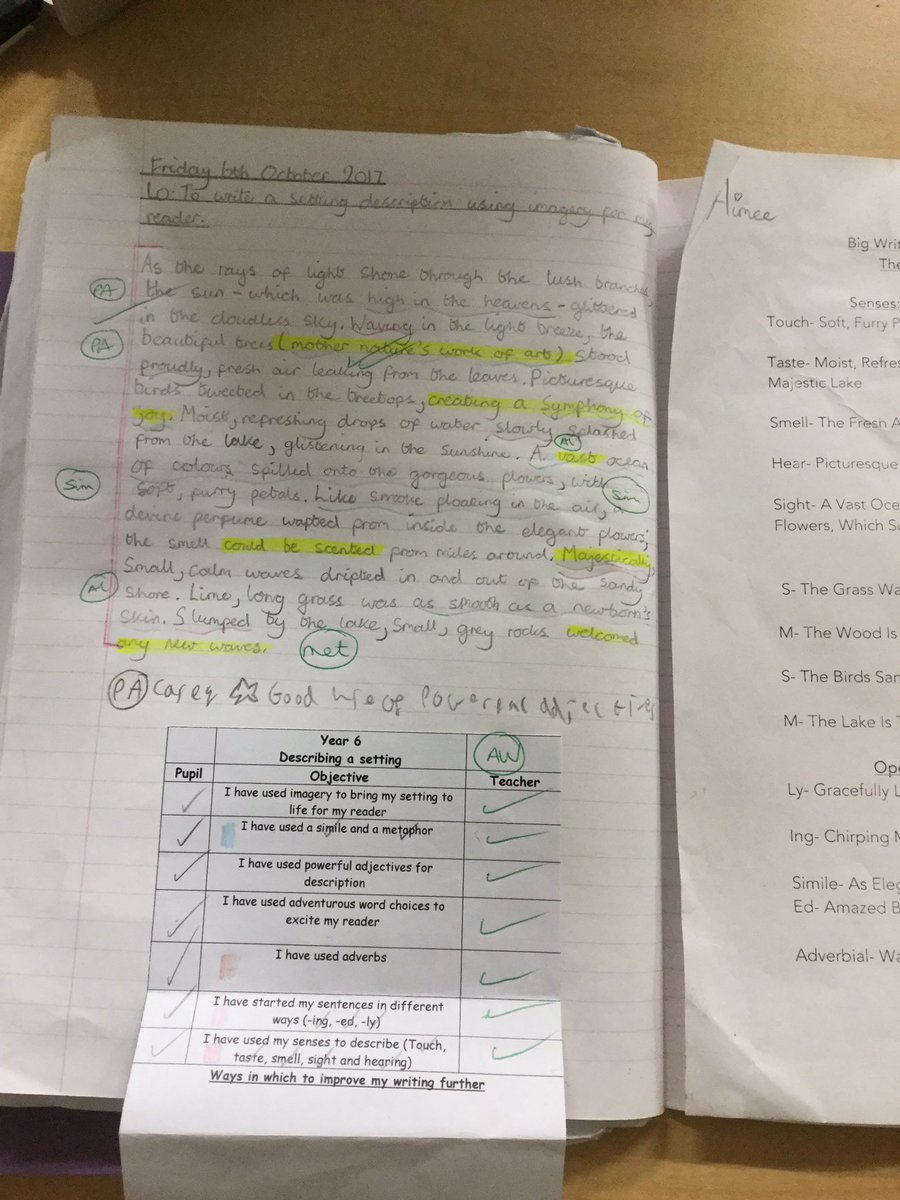 Friday 6th October 2017
LO: To write a setting description using imagery for my
reader.
As the rays of light shone through the lush branches,
PA
the sun - which was high in the heavens - glittered
in the cloudless sky. Waving in the light breeze, the
PA
beautiful trees (mother nature's work of art) stood
proudly, fresh air leaking from the leaves. Picturesque
birds tweeted in the treetops, creating a symphony of
joy. Moist, refreshing drops of water slowly splashed
from the lake, glistening in the sunshine. A vast ocean
of colours spilled onto the gorgeous flowers, with
Sim
soft, furry petals. Like smoke floating in the air, a
Sim
devine perfume wafted from inside the elegant flowers;
the smell could be scented from miles around. Majestically,
small, calm waves drifted in and out of the sandy
shore. Lime, long grass was as smooth as a newborn's
skin. Slumped by the lake, small, grey rocks welcomed
any new waves.
met
PA Good use of Powerful adjectives
Year 6
Describing a setting
AW
Pupil
Objective
Teacher
I have used imagery to bring my setting to
life for my reader
I have used a simile and a metaphor
I have used powerful adjectives for
description
I have used adventurous word choices to
excite my reader
I have used adverbs
I have started my sentences in different
ways (-ing, -ed, -ly)
I have used my senses to describe (Touch,
taste, smell, sight and hearing)
Ways in which to improve my writing further
Aimee
Big
The
Senses:
Touch- Soft, Furry
Taste- Moist,
Majestic Lake
Smell- The Fresh
Hear- Picturesque
Sight- A Vast
Flowers, Which
S- The Grass
M- The Wood Is
S- The Birds
M- The Lake Is
Ly- Gracefully
Ing- Chirping
Simile- As
Ed- Amazed
Adverbial-